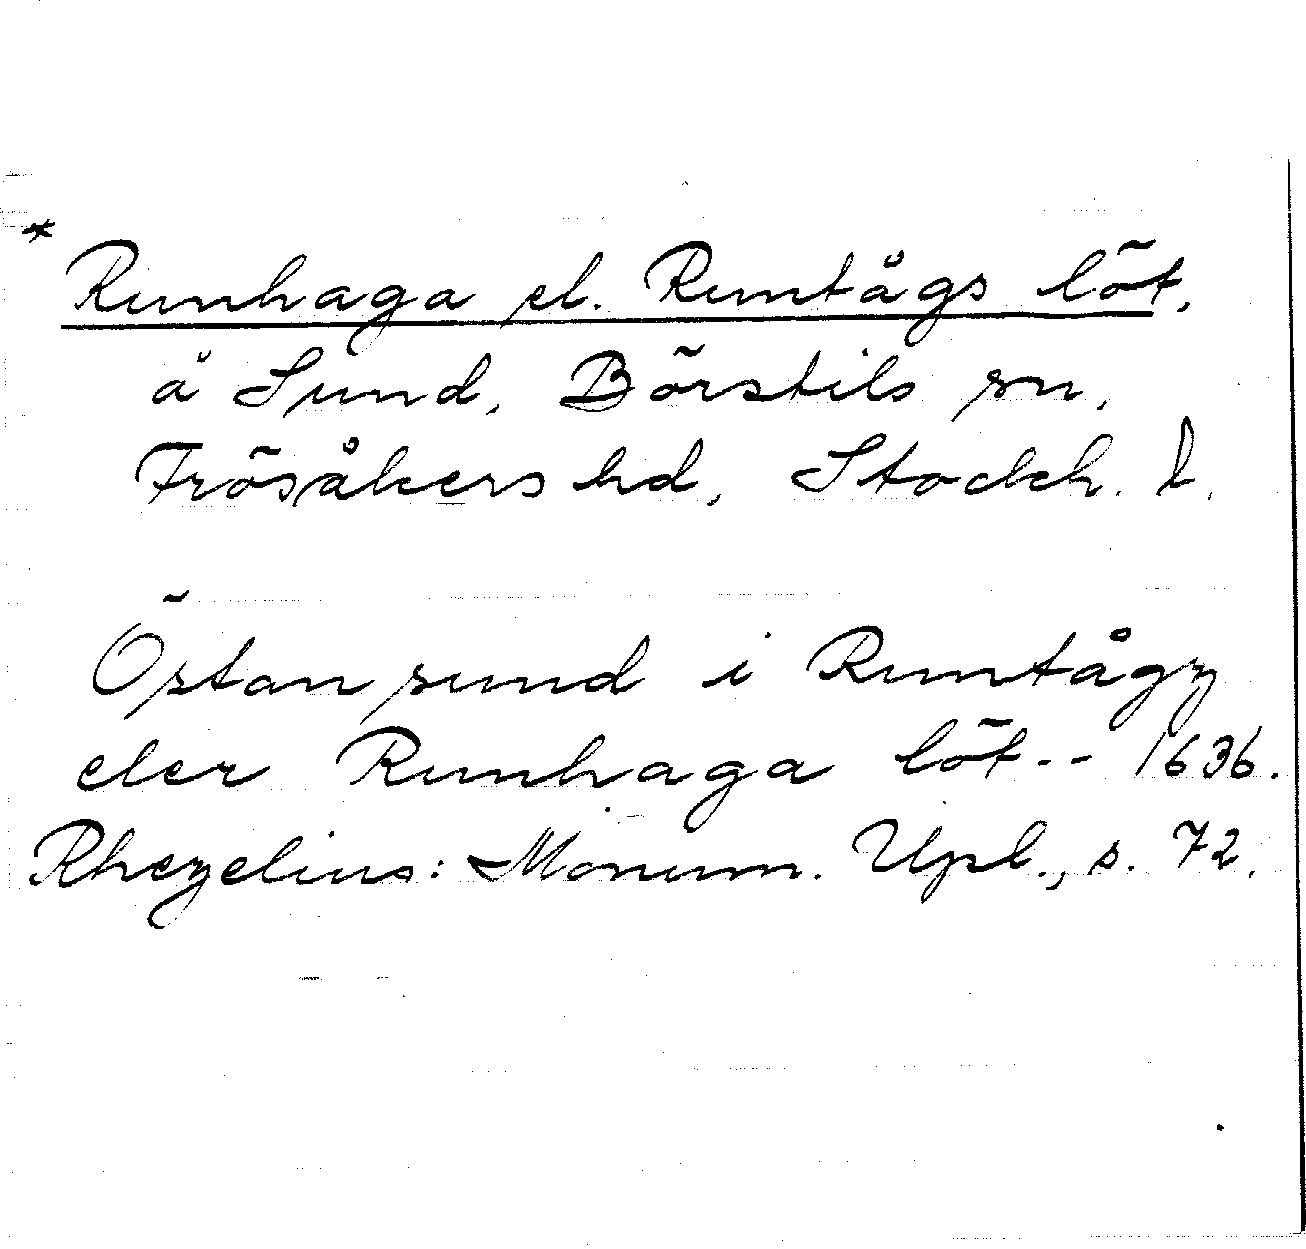 * Runhaga el. Runtågs löt,
å Sund, Börstils sn,
Frösåkers hd, Stockh. l.
Östan sund i Runtågz
eler Runhaga löt -- 1636.
Rhezelius: Monum. Upl., s. 72.